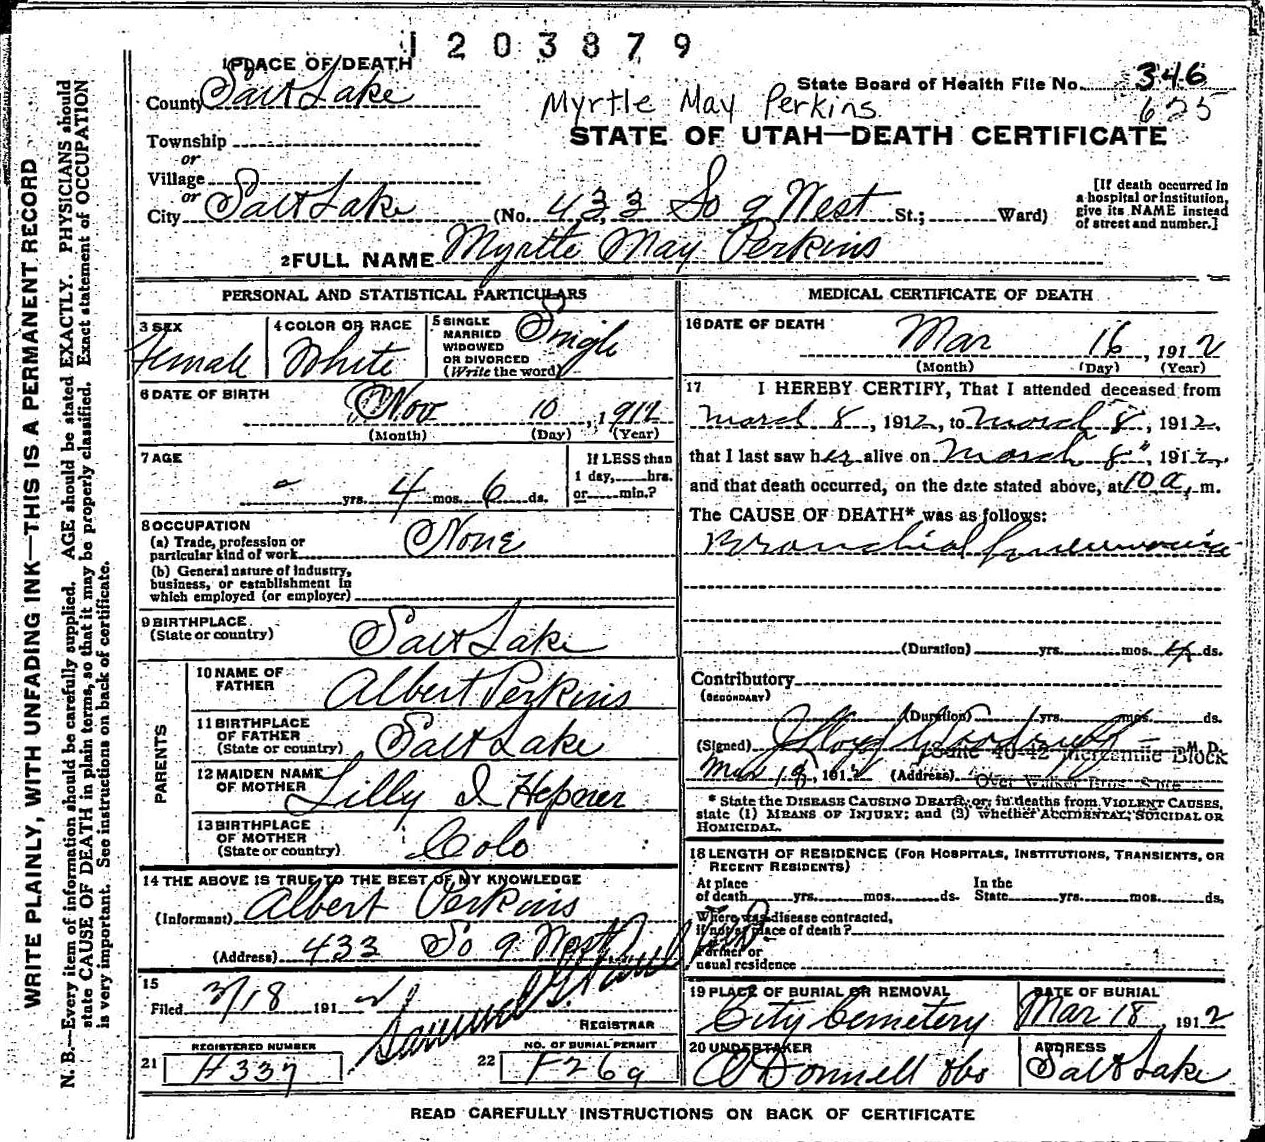 1203879
1 PLACE OF DEATH
County Salt Lake
State Board of Health File No. 346
Myrtle May Perkins 625
STATE OF UTAH—DEATH CERTIFICATE
Township
or
Village
or
City Salt Lake (No. 433 So 9 West St.; Ward)
[If death occurred in a hospital or institution, give its NAME instead of street and number.]
2 FULL NAME Myrtle May Perkins
PERSONAL AND STATISTICAL PARTICULARS
3 SEX Female
4 COLOR OR RACE White
5 SINGLE MARRIED WIDOWED OR DIVORCED (Write the word) Single
6 DATE OF BIRTH Nov 10, 1912
(Month) (Day) (Year)
7 AGE - yrs. 4 mos. 6 ds.
If LESS than 1 day, hrs. or min.?
8 OCCUPATION
(a) Trade, profession or particular kind of work None
(b) General nature of industry, business, or establishment in which employed (or employer)
9 BIRTHPLACE (State or country) Salt Lake
PARENTS
10 NAME OF FATHER Albert Perkins
11 BIRTHPLACE OF FATHER (State or country) Salt Lake
12 MAIDEN NAME OF MOTHER Lilly I Hepner
13 BIRTHPLACE OF MOTHER (State or country) Colo
14 THE ABOVE IS TRUE TO THE BEST OF MY KNOWLEDGE
(Informant) Albert Perkins
(Address) 433 So 9 West
15
Filed 3/18 1912 Samuel G.
REGISTRAR
REGISTERED NUMBER
21 H337
NO. OF BURIAL PERMIT
22 F269
MEDICAL CERTIFICATE OF DEATH
16 DATE OF DEATH Mar 16, 1912
(Month) (Day) (Year)
17 I HEREBY CERTIFY, That I attended deceased from
March 8, 1912, to March 8, 1912,
that I last saw her alive on March 8", 1912,
and that death occurred, on the date stated above, at 10 a. m.
The CAUSE OF DEATH* was as follows:
Bronchial pneumonia
(Duration) yrs. mos. 4 ds.
Contributory
(SECONDARY)
(Duration) yrs. mos. ds.
(Signed) Lloyd Woodruff M.D.
Mar 18, 1912 (Address) Suite 40-42 Mercantile Block
Over Walker Bros. Store
* State the DISEASE CAUSING DEATH, or, in deaths from VIOLENT CAUSES, state (1) MEANS OF INJURY; and (2) whether ACCIDENTAL, SUICIDAL OR HOMICIDAL.
18 LENGTH OF RESIDENCE (FOR HOSPITALS, INSTITUTIONS, TRANSIENTS, OR RECENT RESIDENTS)
At place of death yrs. mos. ds. In the State yrs. mos. ds.
Where was disease contracted, if not at place of death?
Former or usual residence
19 PLACE OF BURIAL OR REMOVAL City Cemetery
DATE OF BURIAL Mar 18, 1912
20 UNDERTAKER O'Donnell & Co
ADDRESS Salt Lake
READ CAREFULLY INSTRUCTIONS ON BACK OF CERTIFICATE
WRITE PLAINLY, WITH UNFADING INK—THIS IS A PERMANENT RECORD
N. B.—Every item of information should be carefully supplied. AGE should be stated EXACTLY. PHYSICIANS should
state CAUSE OF DEATH in plain terms, so that it may be properly classified. Exact statement of OCCUPATION
is very important. See instructions on back of certificate.